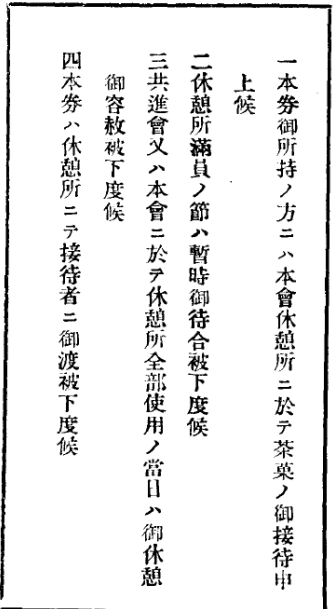 一本券御所持ノ方ニハ本會休憩所ニ於テ茶菓ノ御接待申
上候
二休憩所滿員ノ節ハ暫時御待合被下度候
三共進會又ハ本會ニ於テ休憩所全部使用ノ當日ハ御休憩
御容赦被下度候
四本券ハ休憩所ニテ接待者ニ御渡被下度候